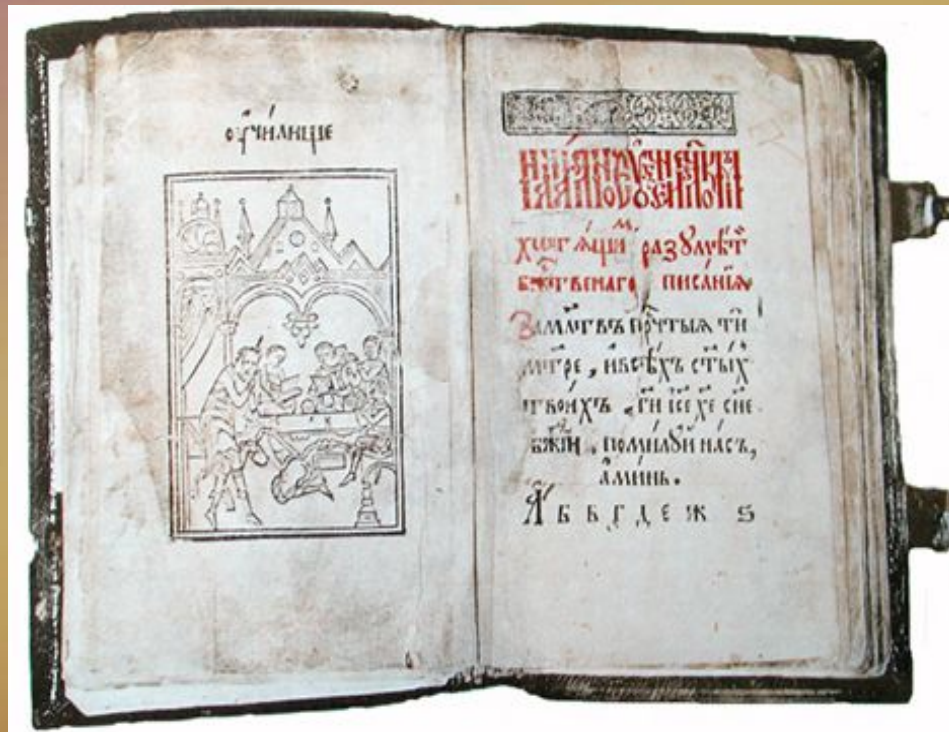 оучи́лище
разꙋмѣ́т
бж҃твенаго писа́нїѧ
За мл҃твъ прч҃тыѧ ти
мт҃ре , и҆ всѣ́хъ ст҃ы́х
твои́хъ , гд҃и і҆с҃е хе҃ сн҃е
бж҃їи , поми́лꙋи на́съ ,
а҆ми́нь .
А҆ б в г д е ж ѕ